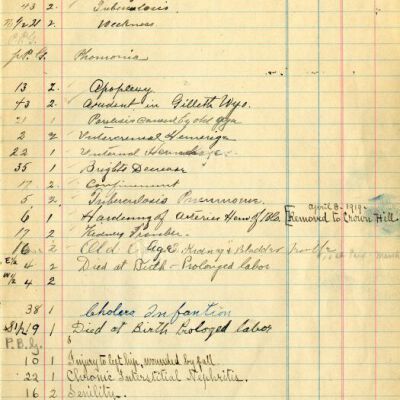 43 2. Tuberculosis
2. Weekness
P. G. Phomonia
13 2. Apoplexy
43 2. Accident in Gilleth Wyo.
21 1 Paralysis caused by old age
2 2 Intercranial Hemoriga
22 1 Internal
35 1 Brights Decease
17 2. Confinement
5 2. Tuberculosis Pneumonia
April 8-1919-
6 1 Hardening of Arteries Hem of [Removed to Crown Hill.
17 2
16 2 Old Age Kidney & Bladder
4 2 Died at Birth - Prolonged labor
4 2
38 1 Cholera Infantion
19 1 Died at Birth Prologed labor
P. B. G.
10 1 Injury to left hip, wounded by fall
22 1 Chronic Interstitial Nephretis.
16 2 Senility.